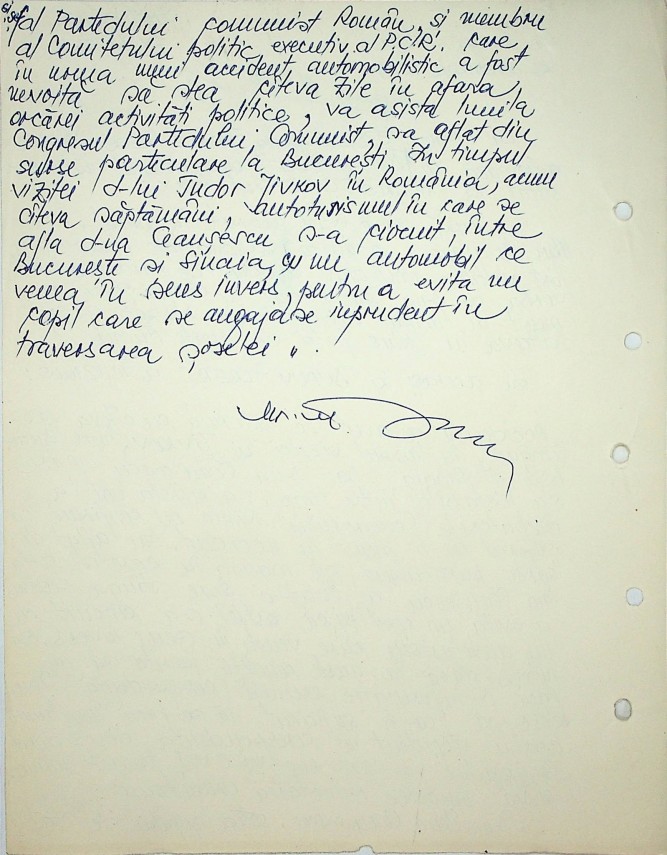 al Partidului comunist Român, și membru
al Comitetului politic executiv al P.C.R. care
în urma unui accident automobilistic a fost
nevoită să stea cîteva zile în afara
orcărei activități politice, va asista luni la
Congresul Partidului Comunist, s-a aflat din
surse particulare la București. În timpul
vizitei d-lui Tudor Jivkov în România, acum
cîteva săptămâni, autoturismul în care se
afla d-na Ceaușescu s-a ciocnit, între
București și Sinaia, cu un automobil ce
venea în sens invers, pentru a evita un
copil care se angajase inprudent în
traversarea șoselei".